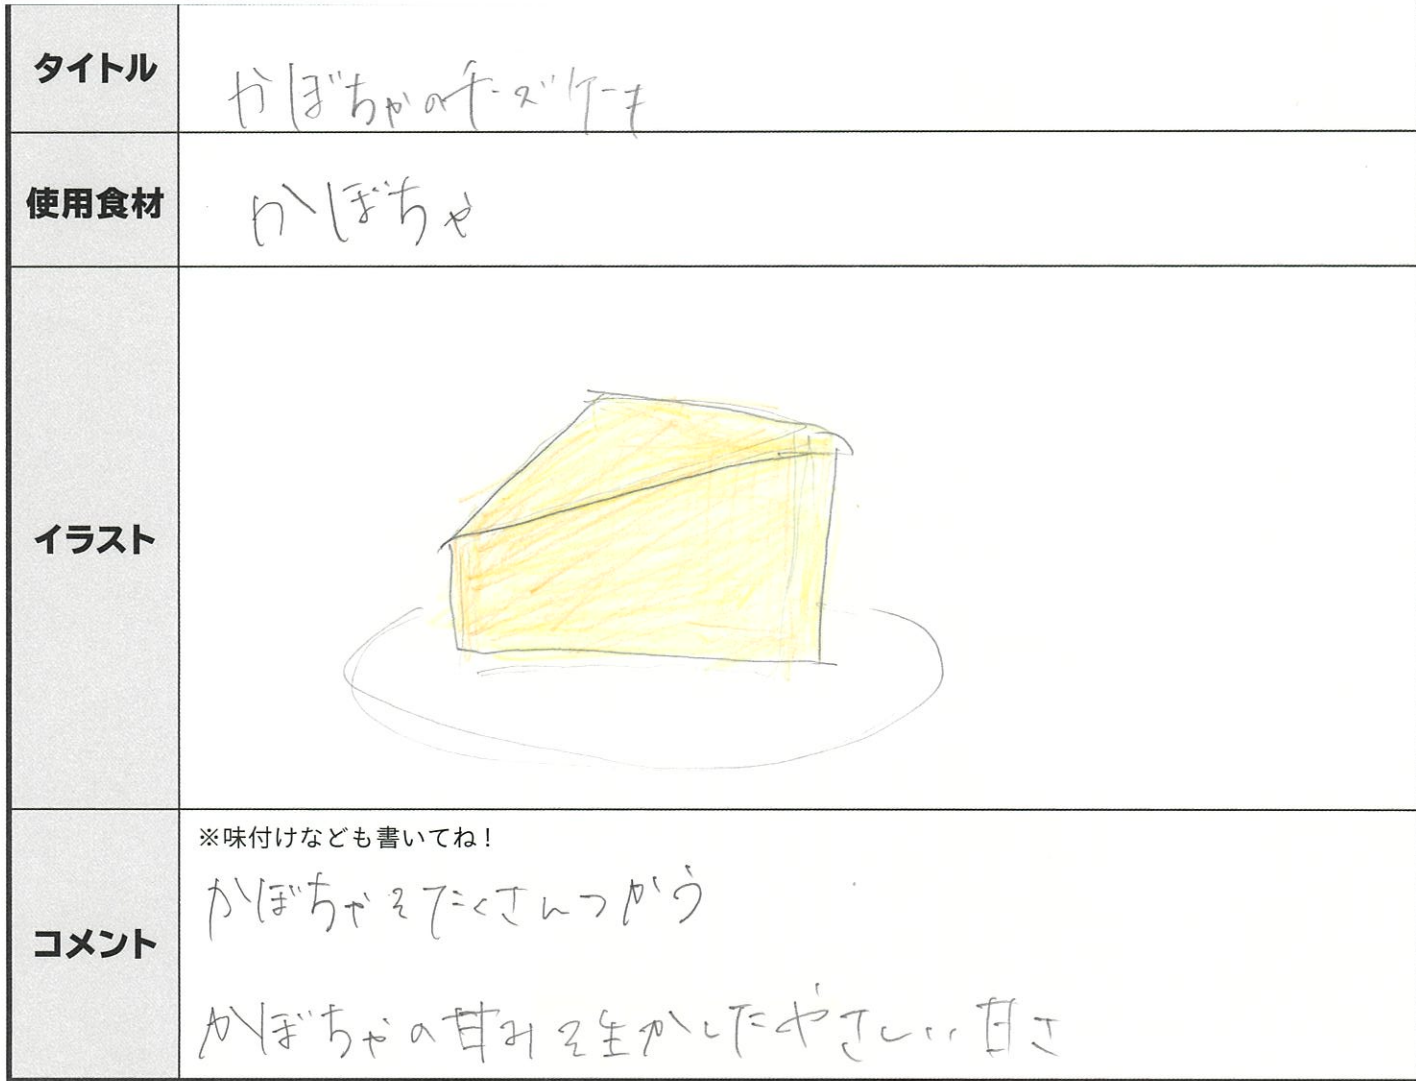 タイトル
かぼちゃのチーズケーキ
使用食材
かぼちゃ
イラスト
コメント
※味付けなども書いてね！
かぼちゃをたくさんつかう
かぼちゃの甘みを生かしたやさしい甘さ